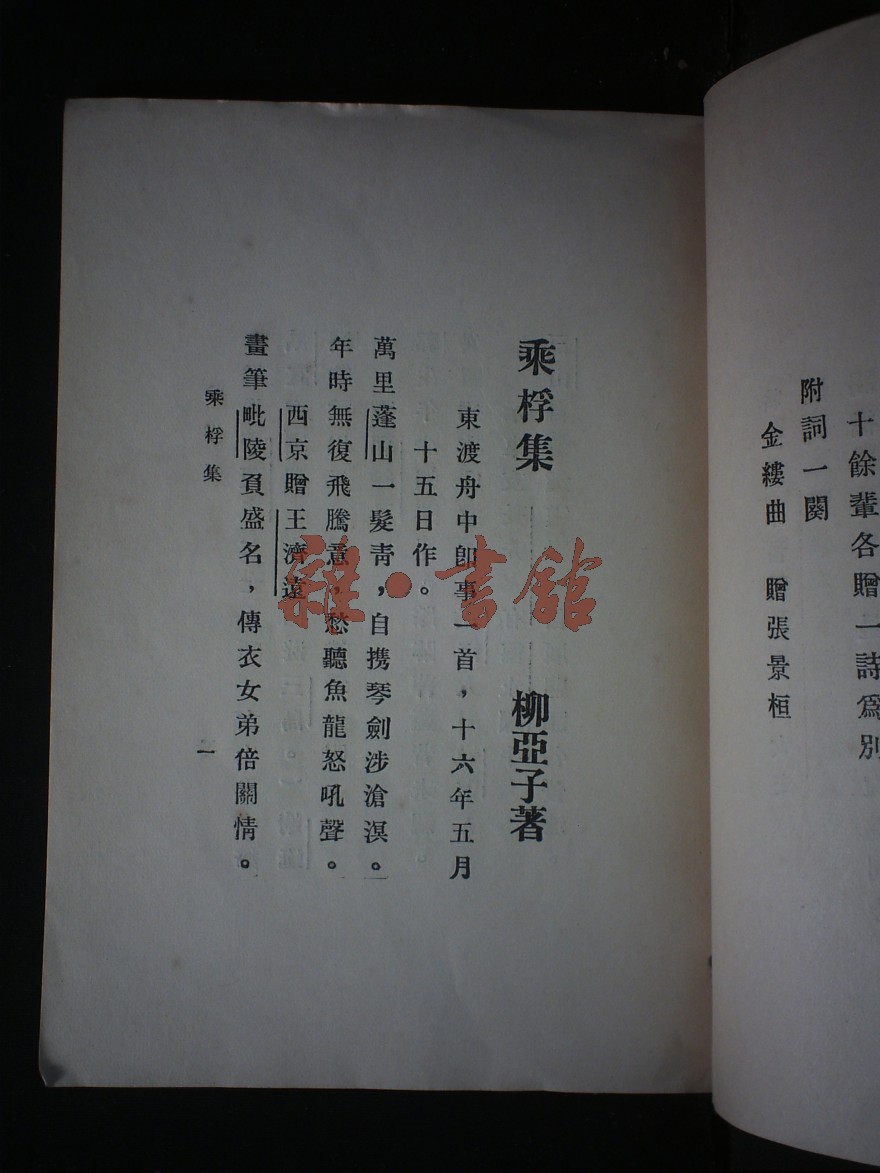 十餘輩各贈一詩爲別
附詞一闋
金縷曲　贈張景桓
乘桴集　柳亞子著
東渡舟中卽事一首，十六年五月
十五日作。
萬里蓬山一髮靑，自携琴劍涉滄溟。
年時無復飛騰意，愁聽魚龍怒吼聲。
西京贈王濟遠
畫筆毗陵負盛名，傳衣女弟倍關情。
乘桴集
一
雜·書館